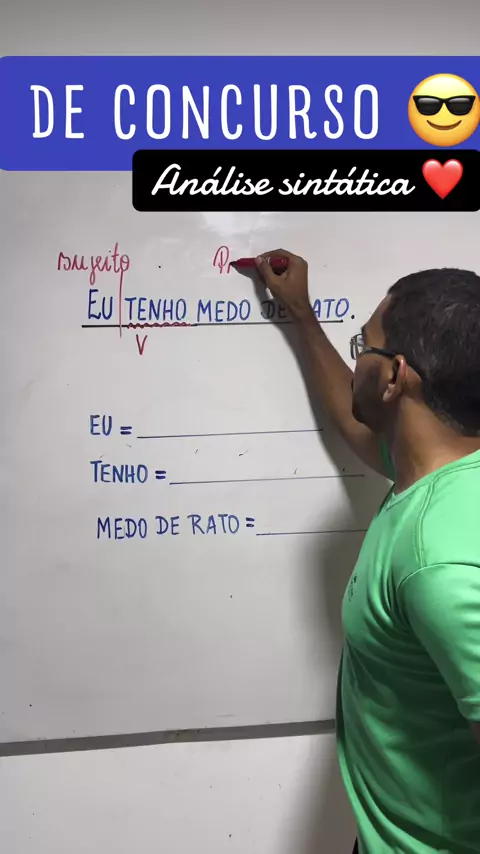 DE CONCURSO 😎
Análise sintática ❤️
sujeito Pr
EU TENHO MEDO DE RATO.
V
EU =
TENHO =
MEDO DE RATO =